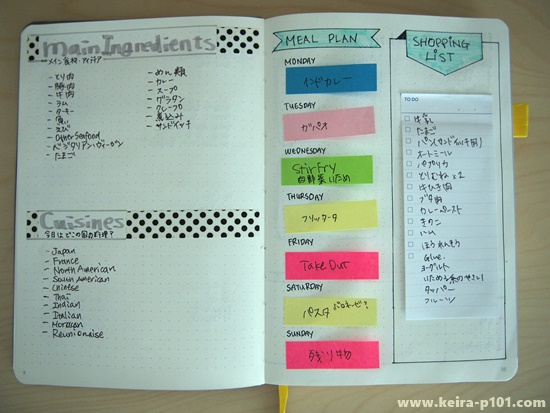 Main Ingredients
メイン食材・アイデア
- とり肉
- 豚肉
- 牛肉
- ラム
- ターキー
- 魚
- えび
- Other Seafood
- ベジタリアン・ヴィーガン
- たまご
- めん類
- カレー
- スープ
- グラタン
- クレープ
- 煮込み
- サンドイッチ
Cuisines
今日はどこの国の料理?
- Japan
- France
- North American
- South American
- Chinese
- Thai
- Indian
- Italian
- Moroccan
- Reunionnaise
MEAL PLAN
MONDAY
インドカレー
TUESDAY
ガパオ
WEDNESDAY
Stirfry
白野菜いため
THURSDAY
フリッタータ
FRIDAY
Take Out
SATURDAY
パスタ
SUNDAY
残り物
SHOPPING
LIST
TO DO
牛乳
たまご
パン(サンドイッチ用)
オートミール
パプリカ
とりむね x 2
牛ひき肉
ブタ肉
カレーペースト
きのこ
ハム
ほうれんそう
Glue
ヨーグルト
いため系のやさい
タッパー
フルーツ
www.keira-p101.com